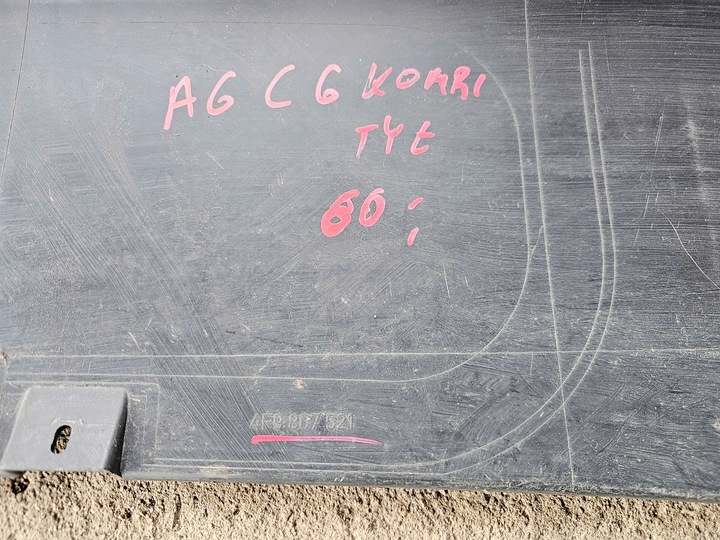 A6 C6 KOMRI
TYŁ
60;
4F9 807 521